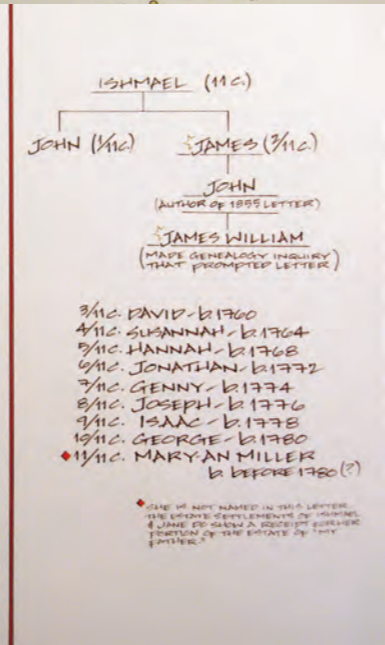 ISHMAEL (11 C.)
JOHN (1/11 C.) JAMES (2/11 C.)
JOHN
(AUTHOR OF 1855 LETTER)
JAMES WILLIAM
(MADE GENEALOGY INQUIRY
THAT PROMPTED LETTER)
3/11 C. DAVID - b. 1760
4/11 C. SUSANNAH - b. 1764
5/11 C. HANNAH - b. 1768
6/11 C. JONATHAN - b. 1772
7/11 C. GENNY - b. 1774
8/11 C. JOSEPH - b. 1776
9/11 C. ISAAC - b. 1778
10/11 C. GEORGE - b. 1780
11/11 C. MARY AN MILLER
b. BEFORE 1780 (?)
SHE IS NOT NAMED IN THIS LETTER.
THE ESTATE SETTLEMENTS OF ISHMAEL
& JANE DO SHOW A RECEIPT FOR HER
PORTION OF THE ESTATE OF "MY
FATHER."